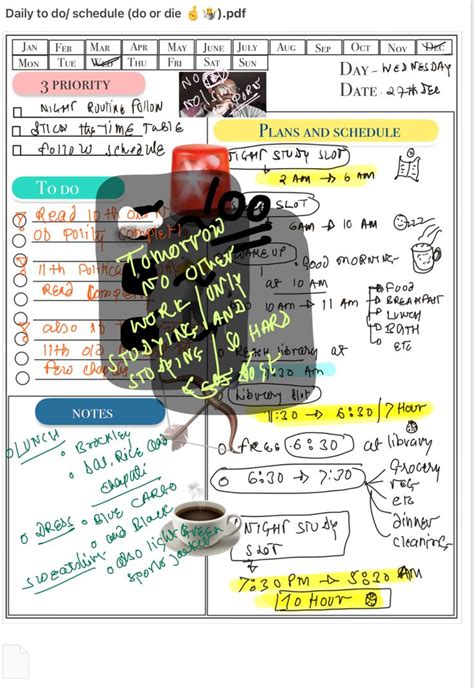 Daily to do/ schedule (do or die 🤞🤷).pdf
JAN FEB MAR APR MAY JUNE JULY AUG SEP OCT NOV DEC
MON TUE WED THU FRI SAT SUN
DAY - WEDNESDAY
DATE. 27th DEC
3 PRIORITY
NIGHT ROUTINE FOLLOW
STICK the-TIME TABLE
follow schedule
NO
PORN
PLANS AND SCHEDULE
NIGHT STUDY SLOT
2 AM → 6 AM
SLOT
6AM → 10 AM
WAKE UP
GOOD MORNING
at 10 AM
10 AM → 11 AM
FOOD
BREAKFAST
LUNCH
BATH
ETC
REACH library at
11:30 AM
Library Slot
11:30 → 6:30 / 7 Hour
free 6:30 at library
6:30 → 7:30
Grocery
VEG
etc
dinner
cleaning
NIGHT STUDY
SLOT
7:30 PM → 5:30 AM
10 HOUR
TO DO
Read 10th
old Polity complet
11th Political
READ Comple
also
11th old
few cha
100
TOMORROW
NO OTHER
WORK ONLY
STUDYING AND
STUDYING GO HARD
NOTES
LUNCH
Brockley
Dal, Rice and
chapati
DRESS
BLUE CARGO
and Black
sweatshirt
also light green
sports jacket